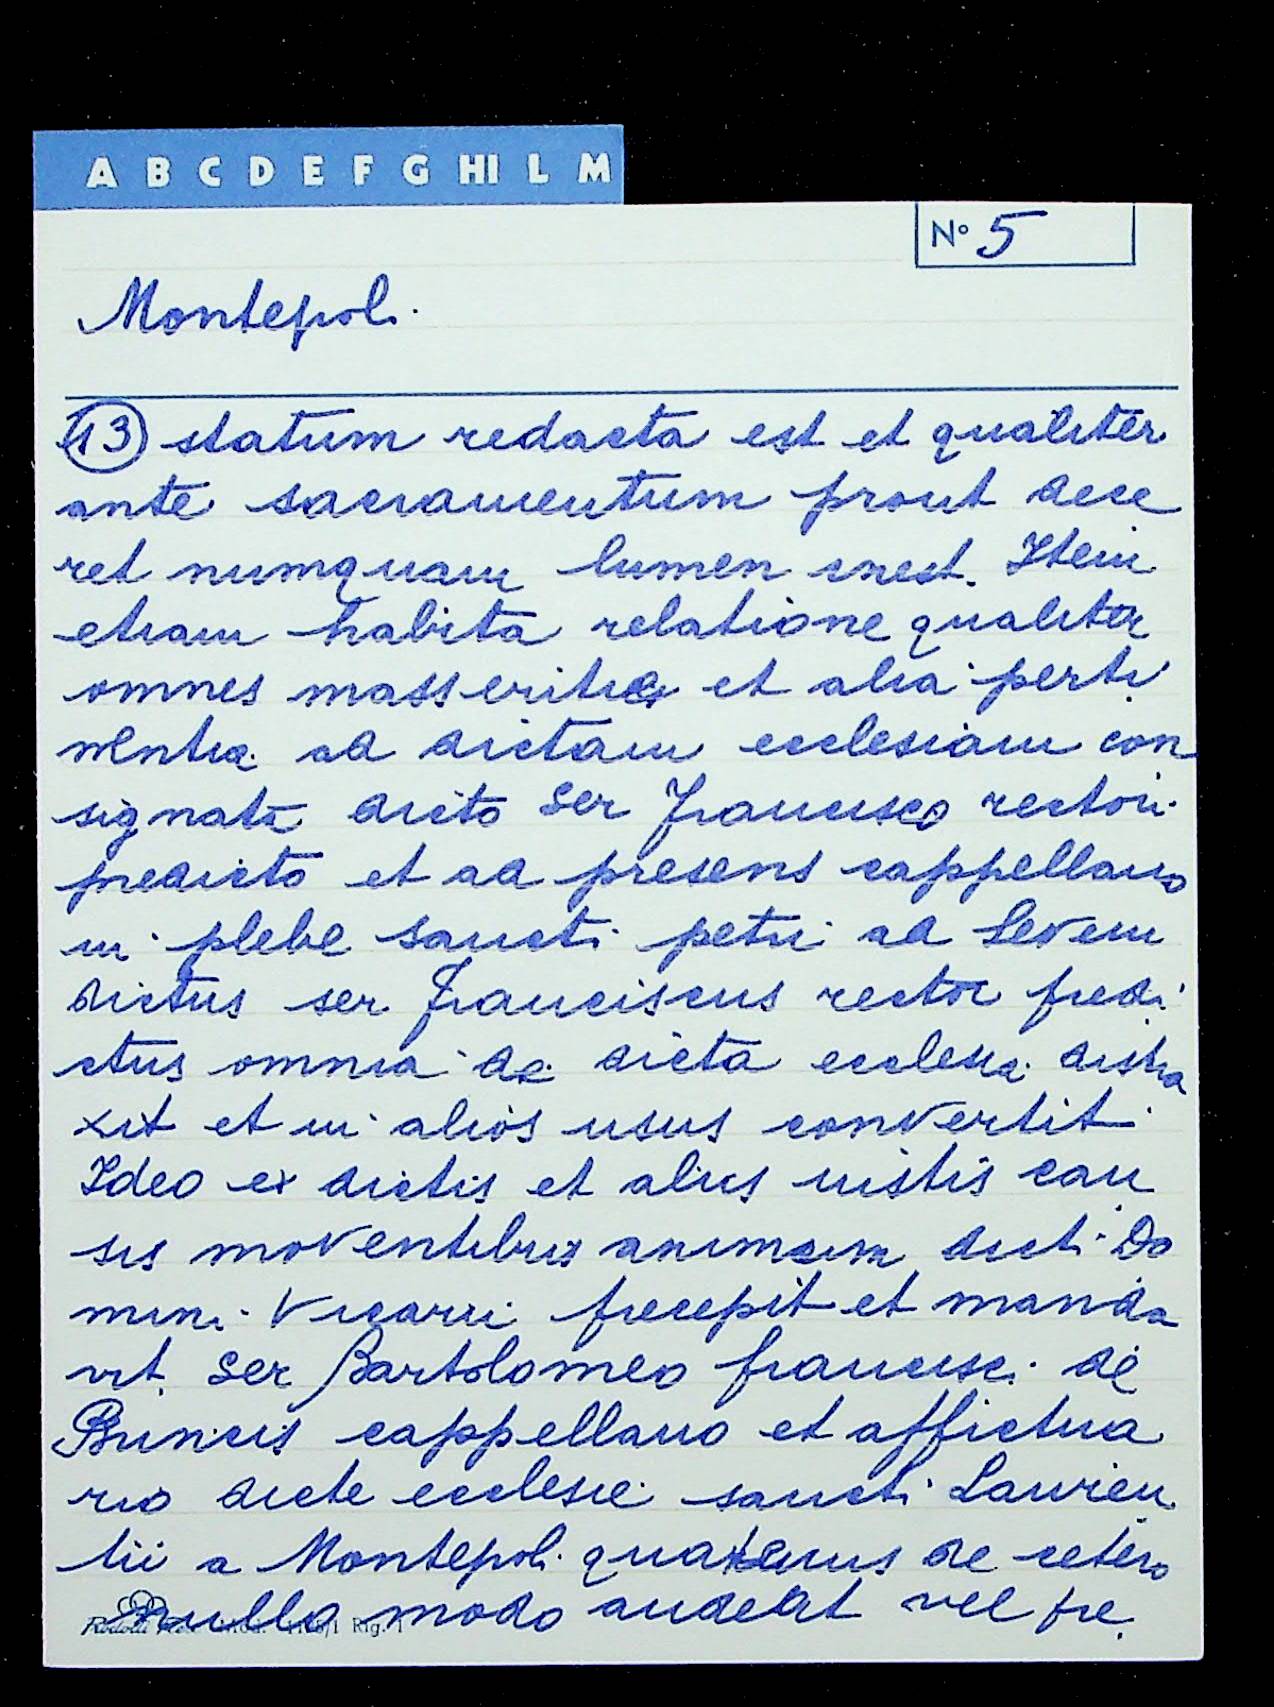 A B C D E F G HI L M
N° 5
Montepoli
13 statum redacta est et qualiter
ante sacramentum prout dece
ret numquam lumen inest. Item
etiam habita relatione qualiter
omnes masseritie et alia perti
nentia ad dictam ecclesiam con
signata dicto ser Francisco rectori
predicto et ad presens cappellano
in plebe sancti petri ad Sevem
dictus ser Franciscus rector predi
ctus omnia de dicta ecclesia distra
xit et in alios usus convertit
Ideo ex dictis et aliis iustis cau
sis moventibus animum dicti Do
mini Vicarii precepit et manda
vit ser Bartolomeo francisci de
cappellano et affictua
rio dicte ecclesie sancti Lauren
tii a Montepoli quatenus de cetero
nullo modo audeat vel pre
Rig. 1